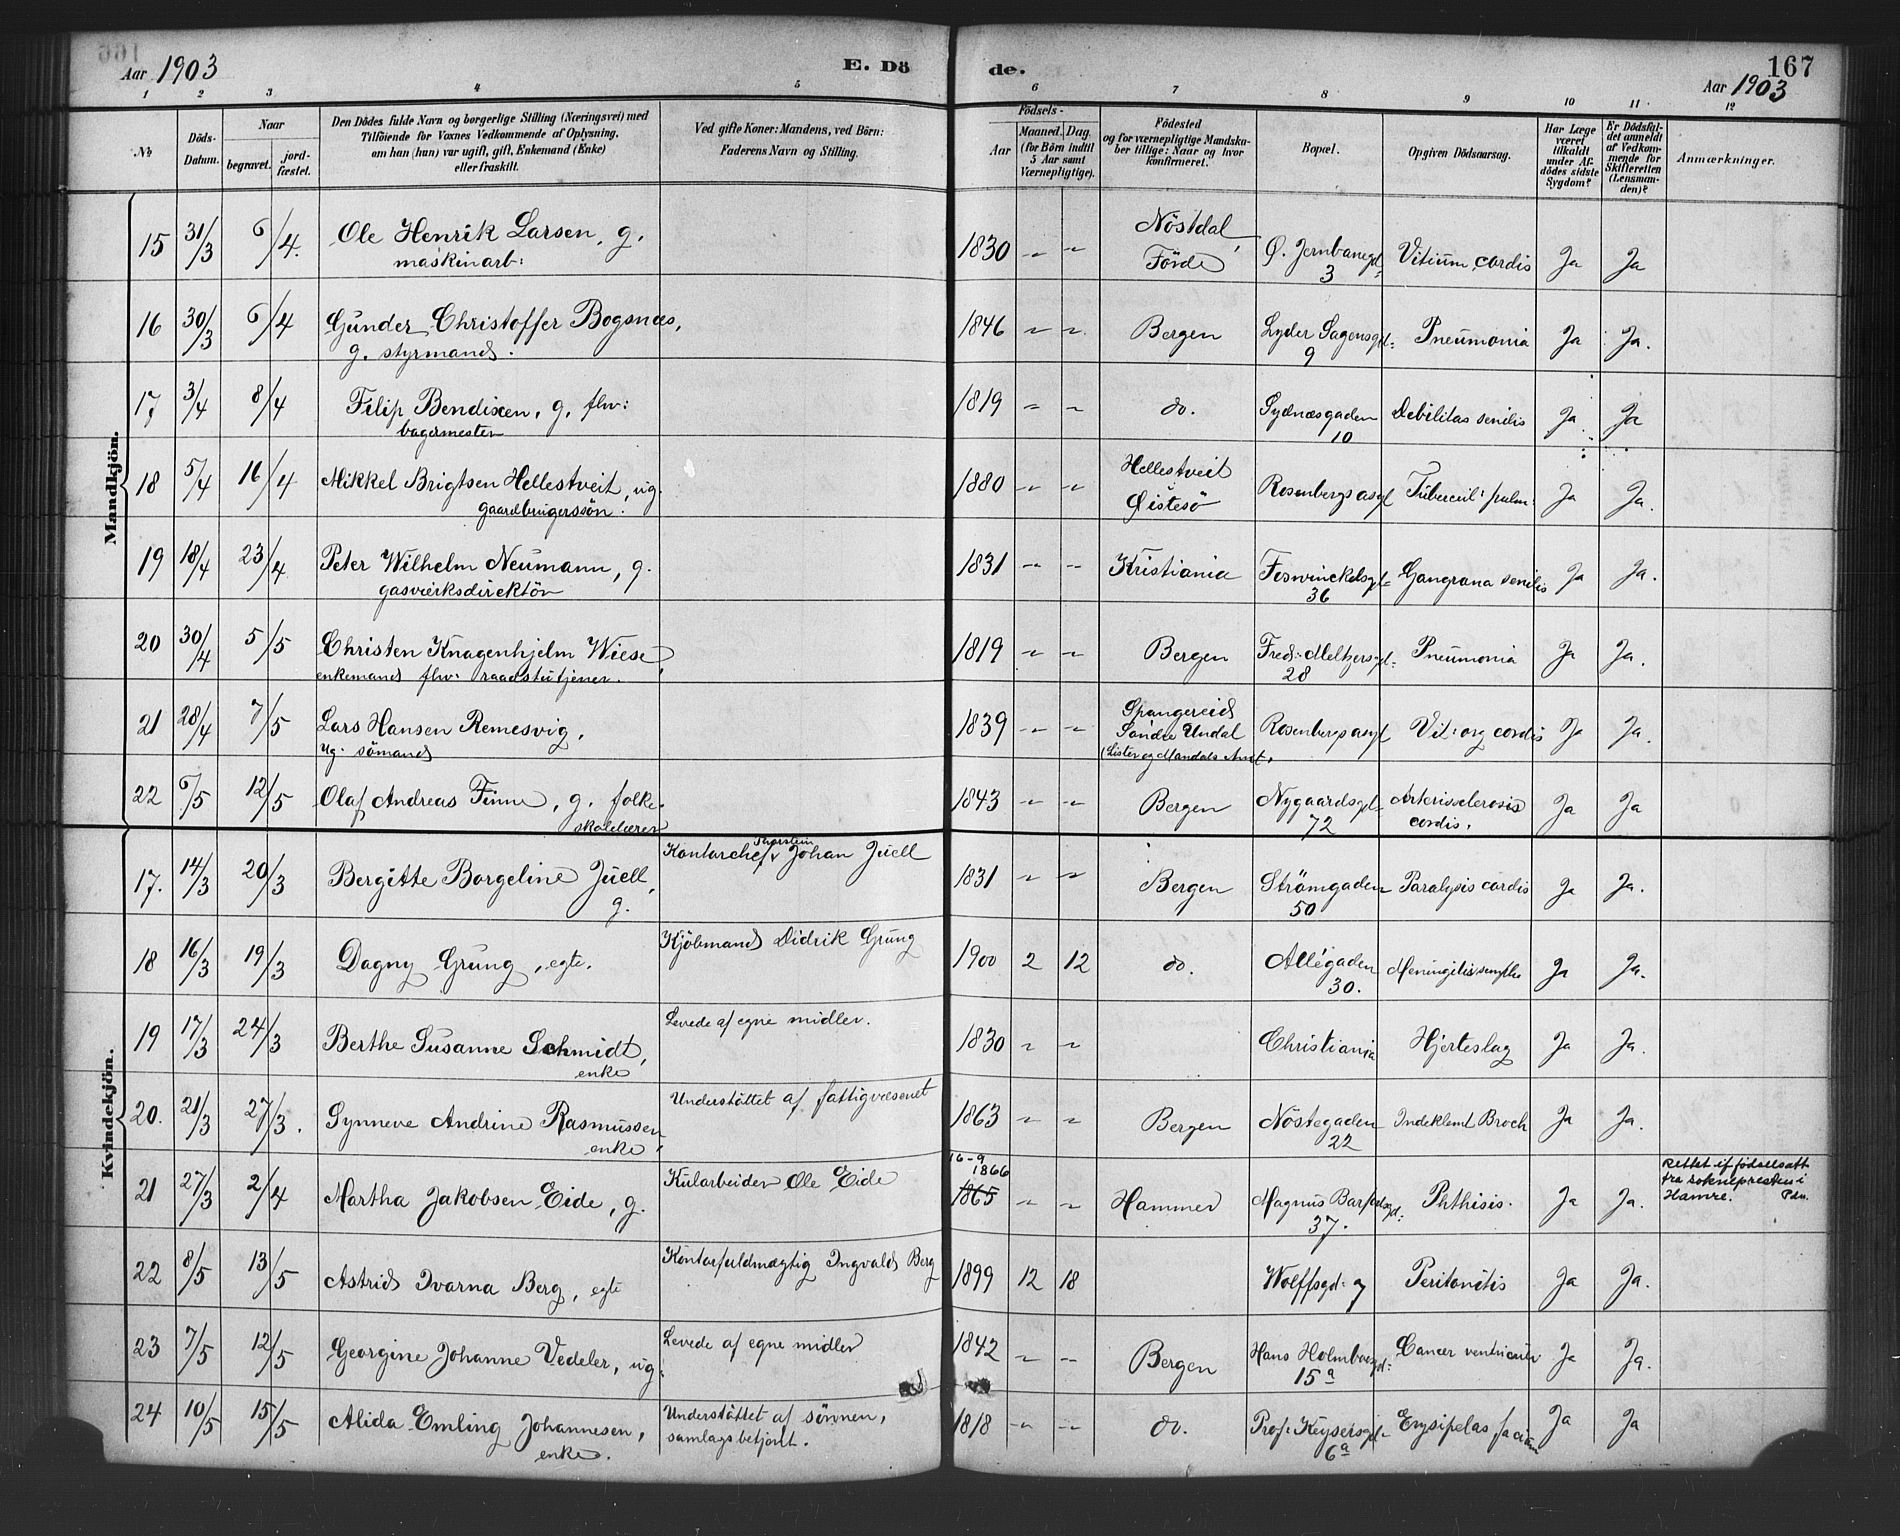 Aar 1903
E. Dö
de.
167
Aar 1903
1 2 3 4 5 6 7 8 9 10 11 12
No
Döds-Datum.
Naar
begravet.
jord-fæstet.
Den Dödes fulde Navn og borgerlige Stilling (Næringsvei) med
Tilföiende for Voxnes Vedkommende af Oplysning,
om han (hun) var ugift, gift, Enkemand (Enke)
eller fraskilt.
Ved gifte Koner: Mandens, ved Börn:
Faderens Navn og Stilling.
Födsels-
Aar
Maaned. Dag.
(for Börn indtil
5 Aar samt
Værnepligtige).
Födested
og for værnepligtige Mandska-
ber tillige: Naar og hvor
konfirmeret.
Bopæl.
Opgiven Dödsaarsag.
Har Læge
været
tilkaldt
under Af-
dödes sidste
Sygdom?
Er Dödsfal-
det anmeldt
af Vedkom-
mende for
Skifteretten
(Lensman-
den)?
Anmærkninger.
Mandkjön.
15 31/3 6/4. Ole Henrik Larsen, g. maskinarb: 1830 " " Nöstdal, Förde Ø. Jernbanegd: 3 Vitium cordis Ja Ja
16 30/3 6/4 Gunder Christoffer Bogsnæs, g. styrmand. 1846 " " Bergen Lyder Sagensgd: 9 Pneumonia Ja Ja.
17 3/4 8/4 Filip Bendixen, g. fhv: bagermester 1819 " " do. Sydnæsgaden 10 Debilitas senilis Ja Ja
18 5/4 16/4 Mikkel Brigtsen Hellestveit, ug. gaardbrugerssön. 1880 " " Hellestveit Øistesö Rosenbergs asyl Tubercul: pulm: Ja Ja.
19 18/4 23/4 Peter Wilhelm Neumann, g. gasværksdirektör 1831 " " Kristiania Foswinckelsgd: 36 Gangræna senilis Ja Ja.
20 30/4 5/5 Christen Knagenhjelm Wiese, enkemand fhv: raadstutjener. 1819 " " Bergen Fred: Meltzersgd: 28 Pneumonia Ja Ja.
21 28/4 7/5 Lars Hansen Remesvig, ug. sömand 1839 " " Spangereid Söndre Undal (Lister og Mandals Amt. Rosenbergs asyl Vit: org cordis Ja Ja.
22 6/5 12/5 Olaf Andreas Finne, g. folkeskolelærer 1843 " " Bergen Nygaardsgd: 72 Arteriosclerosis cordis. Ja Ja
Kvindekjön.
17. 14/3 20/3 Bergitte Borgeline Juell, g. Kontorchef Thorstein Johan Juell 1831 " " Bergen Strömgaden 50 Paralysis cordis Ja Ja.
18 16/3 19/3 Dagny Grung, egte. Kjöbmand Didrik Grung 1900 2 12 do. Allégaden 30. Meningitis simplex Ja Ja.
19 17/3 24/3 Berthe Susanne Schmidt, enke Levede af egne midler. 1830 " " Christiania Hjerteslag Ja Ja.
20. 21/3 27/3. Synneve Andrine Rasmussen, enke Understöttet af fattigvæsenet 1863 " " Bergen Nöstegaden 22 Indeklemt Brock Ja Ja.
21 27/3 2/4 Martha Jakobsen Eide, g. Kularbeider Ole Eide 16-9 1866 1865 " " Hammer Magnus Barfodsgd: 37. Phthisis. Ja Ja. Rettet if födselsatt fra soknepresten i Hamre.
22 8/5 13/5 Astrid Ivarna Berg, egte Kontorfuldmægtig Ingvald Berg 1899 12 18 Wolffsgd: 7 Peritonitis Ja Ja.
23 7/5 12/5 Georgine Johanne Vedeler, ug. Levede af egne midler 1842 " " Bergen Hans Holmboegd: 15a Cancer ventriculi Ja Ja.
24 10/5 15/5 Alida Emling Johannesen, enke. Understöttet af sönnen, samlagsbetjent. 1818 " " do. Prof: Keysersgd: 6a Erysipelas faciem Ja Ja